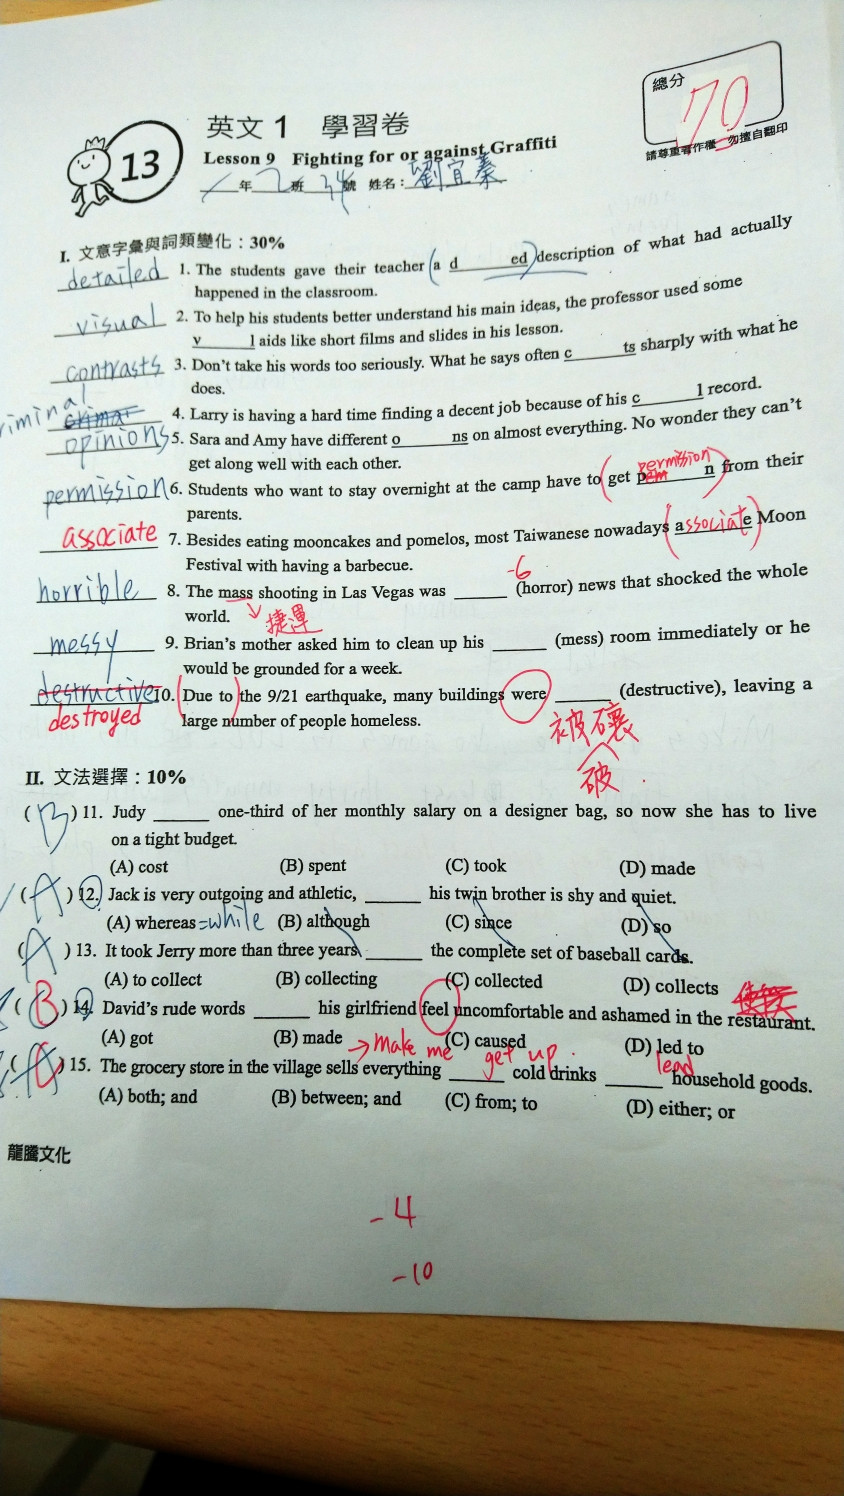 總分
70
請尊重著作權 勿擅自翻印
13
英文 1 學習卷
Lesson 9 Fighting for or against Graffiti
1 年 2 班 34 號 姓名：劉宜蓁
I. 文意字彙與詞類變化：30%
detailed 1. The students gave their teacher (a d______ed) description of what had actually
happened in the classroom.
visual 2. To help his students better understand his main ideas, the professor used some
v______l aids like short films and slides in his lesson.
contrasts 3. Don't take his words too seriously. What he says often c______ts sharply with what he
does.
riminal 4. Larry is having a hard time finding a decent job because of his c______l record.
opinions 5. Sara and Amy have different o______ns on almost everything. No wonder they can't
get along well with each other.
permission
permission 6. Students who want to stay overnight at the camp have to (get p______n) from their
parents.
associate 7. Besides eating mooncakes and pomelos, most Taiwanese nowadays (associate) Moon
Festival with having a barbecue.
-6
horrible 8. The mass shooting in Las Vegas was ______ (horror) news that shocked the whole
world. 捷運
messy 9. Brian's mother asked him to clean up his ______ (mess) room immediately or he
would be grounded for a week.
destructive 10. (Due to) the 9/21 earthquake, many buildings were ______ (destructive), leaving a
destroyed large number of people homeless.
被壞
破
II. 文法選擇：10%
(B) 11. Judy ______ one-third of her monthly salary on a designer bag, so now she has to live
on a tight budget.
(A) cost (B) spent (C) took (D) made
(A) 12. Jack is very outgoing and athletic, ______ his twin brother is shy and quiet.
(A) whereas =while (B) although (C) since (D) so
(A) 13. It took Jerry more than three years ______ the complete set of baseball cards.
(A) to collect (B) collecting (C) collected (D) collects
(B) 14. David's rude words ______ his girlfriend feel uncomfortable and ashamed in the restaurant.
(A) got (B) made (C) caused (D) led to
→ make me get up. lead
(C) 15. The grocery store in the village sells everything ______ cold drinks ______ household goods.
(A) both; and (B) between; and (C) from; to (D) either; or
龍騰文化
-4
-10